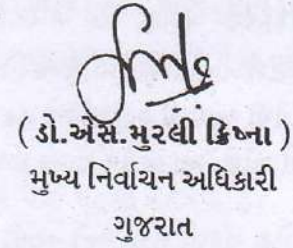 ( ડો.એસ.મુરલી ક્રિષ્ના )
મુખ્ય નિર્વાચન અધિકારી
ગુજરાત